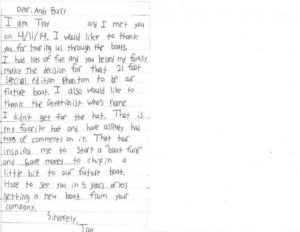 Dear, Andy Bussy
I am Troy and I met you
on 4/11/19. I would like to thank
you for touring us through the boats.
I had lots of fun and you helped my family
make the decision for that 21 foot
special edition phantom to be our
future boat. I also would like to
thank the receptionist who's name
I didn't get for the hat. That is
my favorite hat and have already had
tons of comments on it. That tour
inspired me to start a "boat fund"
and save money to chip in a
little bit to our future boat.
Hope to see you in 5 years or less
getting a new boat from your
company.
Sincerely,
Troy